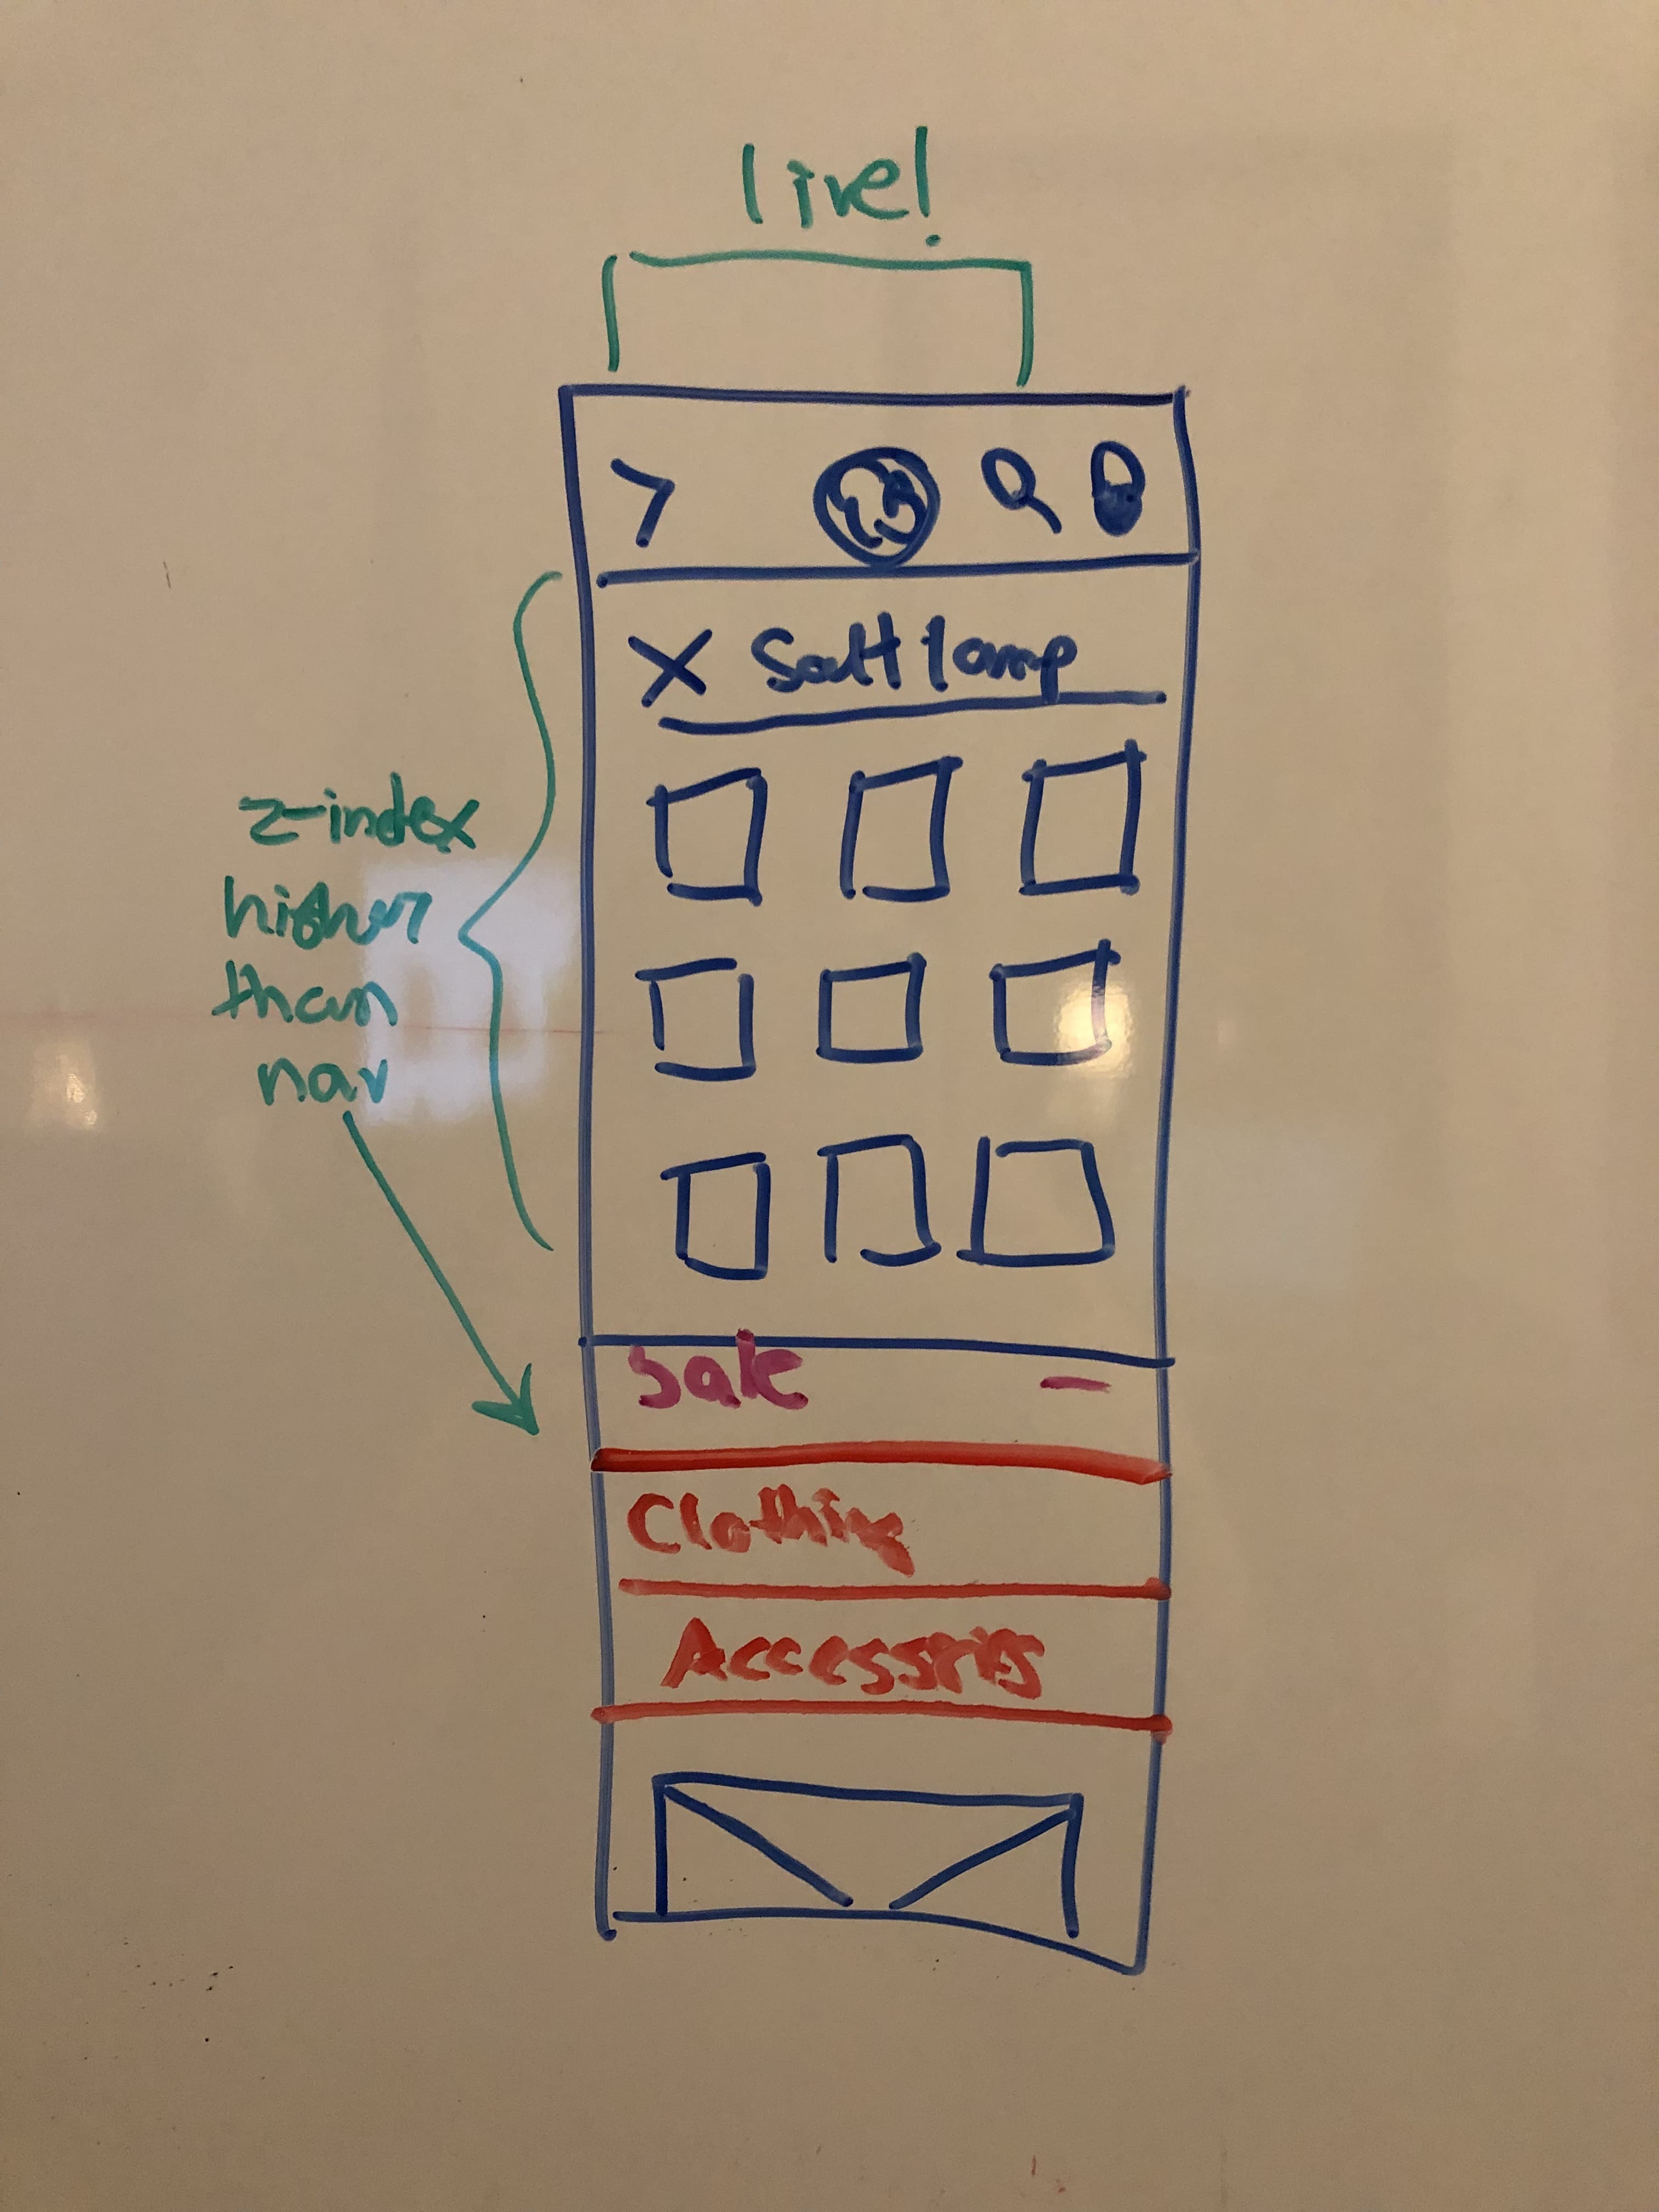 live!
X Salt lamp
z-index
higher
than
nav
Sale —
Clothing
Accessries